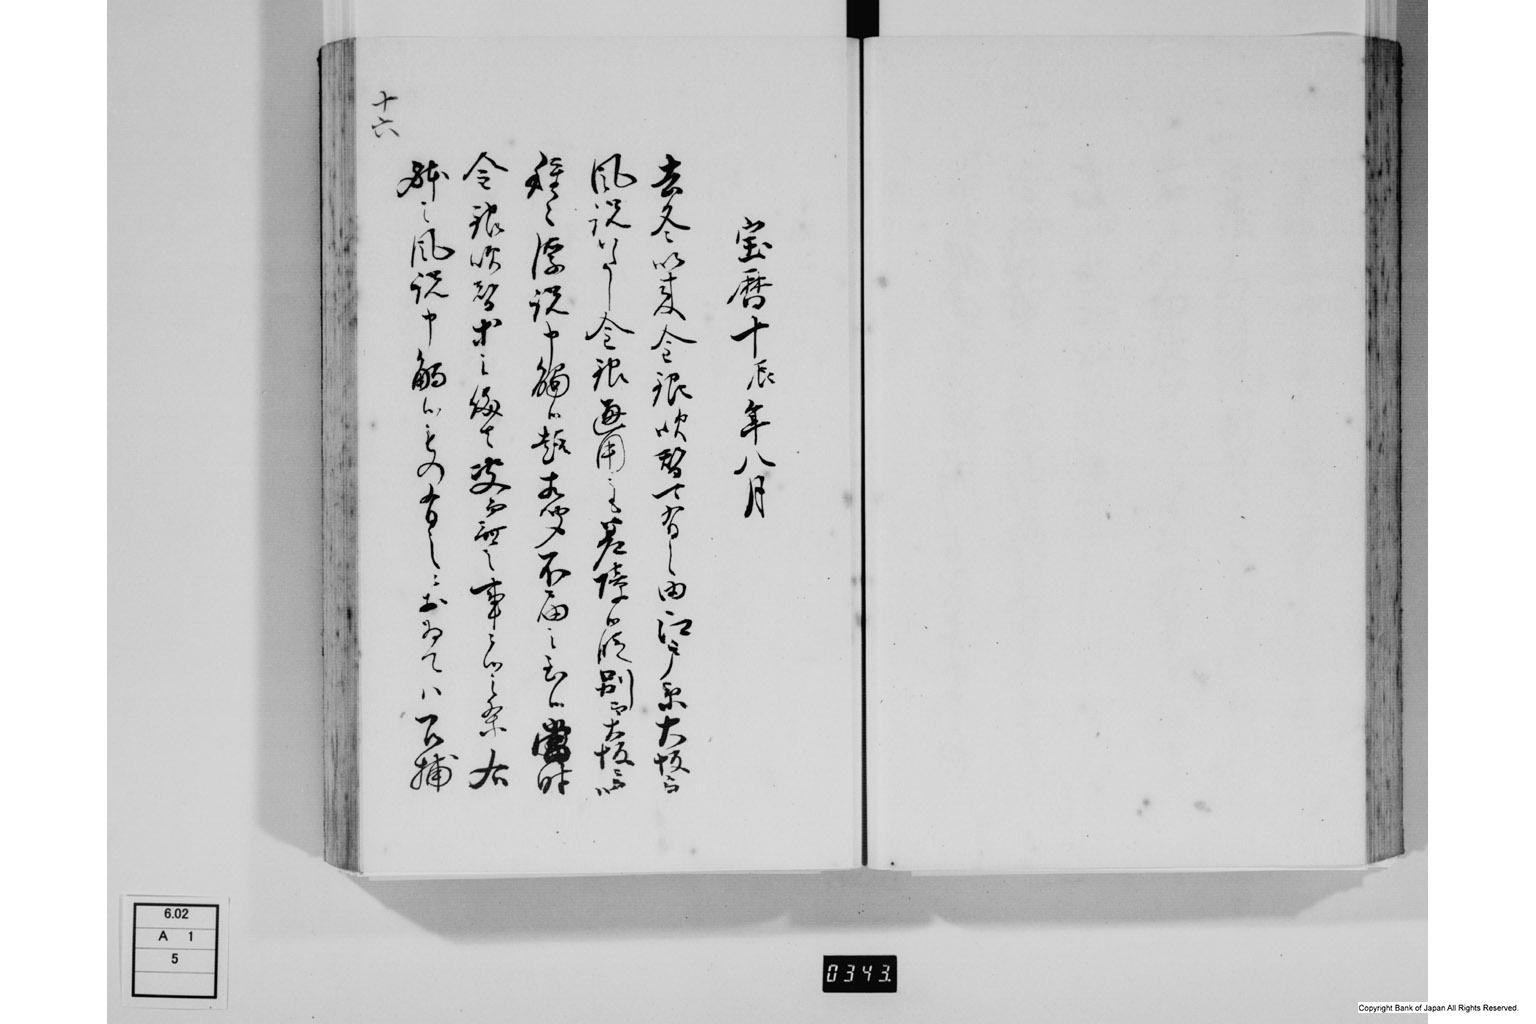 十六
宝暦十辰年八月
去冬以来金銀吹替可有之由江戸京大坂ニ而
風説いたし金銀通用之差障ニ成別而大坂ニ而ハ
種々浮説申触候趣相聞不届之至候當時
金銀吹替等之儀者曽而無之事ニ候之条右
躰之風説申触候もの有之ニおゐてハ召捕
6.02
A 1
5
0343.
Copyright Bank of Japan All Rights Reserved.